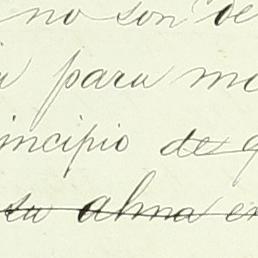 no son de
a para mo
incipio de q
su alma en